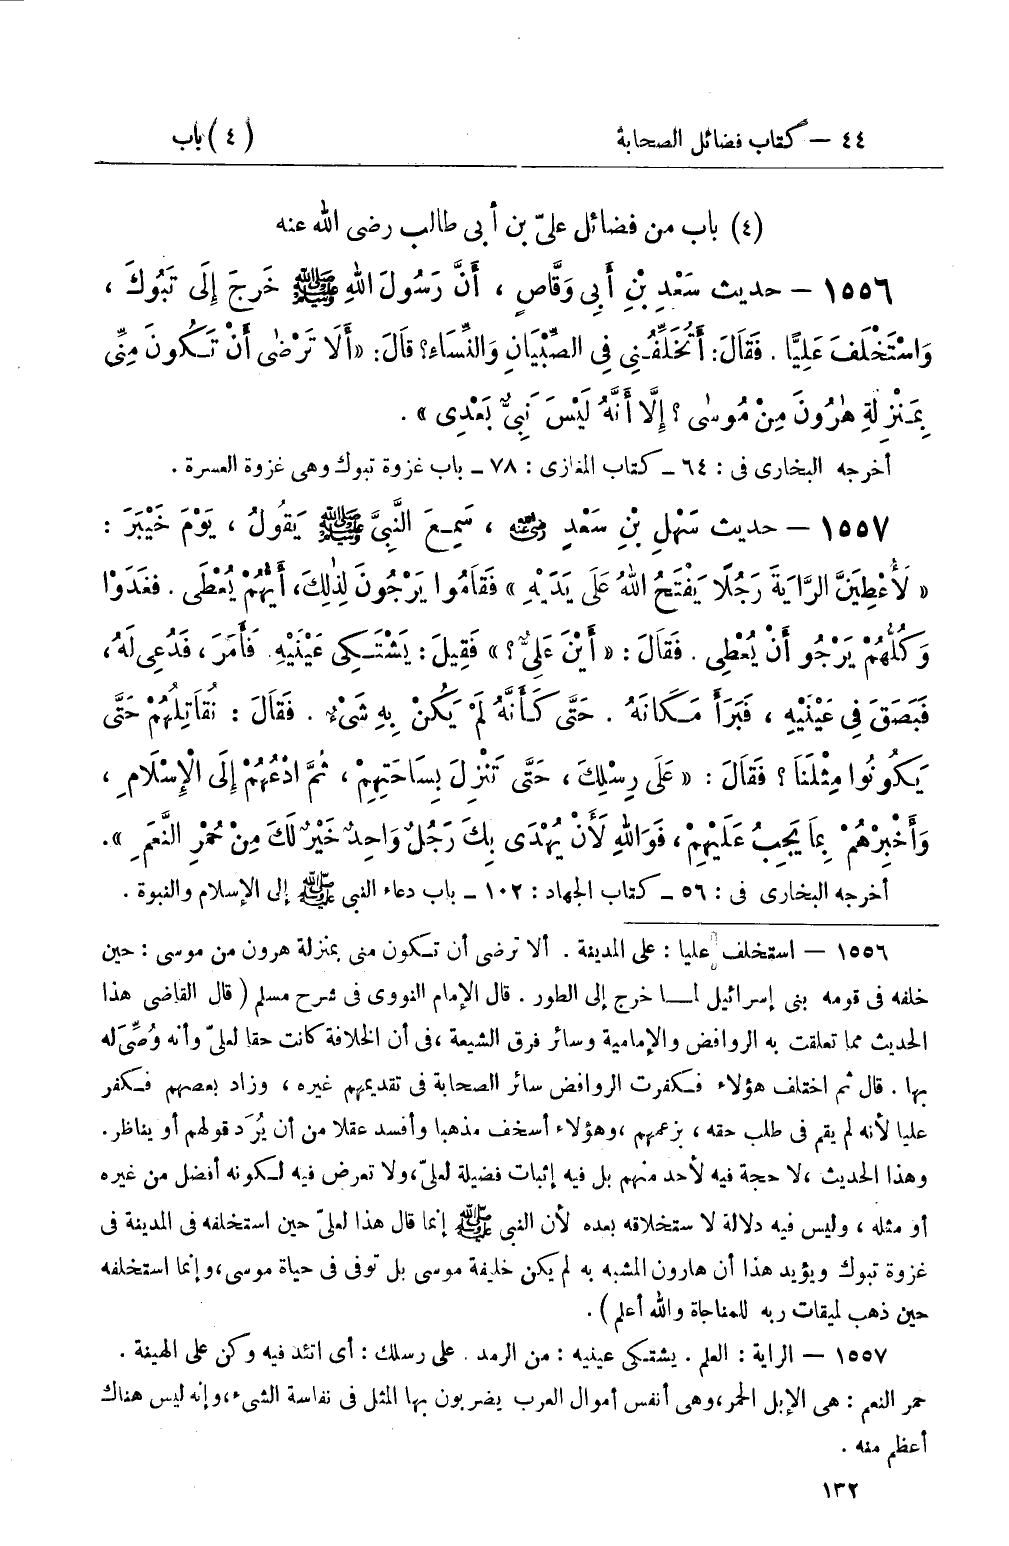 ٤٤ – كتاب فضائل الصحابة (٤) باب
(٤) باب من فضائل علىّ بن أبى طالب رضى الله عنه
١٥٥٦ – حديث سَعْدِ بْنِ أَبِى وَقَّاصٍ ، أَنَّ رَسُولَ اللهِ ﷺ خَرجَ إِلَى تَبُوكَ ،
وَاسْتَخْلَفَ عَلِيًّا . فَقَالَ: أَتُخَلِّفُنِى فِى الصِّبْيَانِ وَالنِّسَاءِ؟ قالَ: «أَلَا تَرْضٰى أَنْ تَكُونَ مِنِّى
بِمَنْزِلَةِ هٰرُونَ مِنْ مُوسٰى ؟ إِلَّا أَنَّهُ لَيْسَ نَبِىٌّ بَعْدِى» .
أخرجه البخارى فى : ٦٤ ـ كتاب المغازى : ٧٨ ـ باب غزوة تبوك وهى غزوة العسرة .
١٥٥٧ – حديث سَهْلِ بْنِ سَعْدٍ رضى الله عنه ، سَمِعَ النَّبِيَّ ﷺ يَقُولُ ، يَوْمَ خَيْبَرَ :
« لَأُعْطِيَنَّ الرَّايَةَ رَجُلًا يَفْتَحُ اللهُ عَلَى يَدَيْهِ » فَقَامُوا يَرْجُونَ لِذٰلِكَ، أَيُّهُمْ يُعْطَى . فغَدَوْا
وَكُلُّهُمْ يَرْجُو أَنْ يُعْطٰى . فَقَالَ : « أَيْنَ عَلِىٌّ ؟ » فَقِيلَ : يَشْتَكِى عَيْنَيْهِ. فَأَمَرَ ، فَدُعِىَ لَهُ،
فَبَصَقَ فِى عَيْنَيْهِ ، فَبَرَأَ مَكَانَهُ . حَتَّى كَأَنَّهُ لَمْ يَكُنْ بِهِ شَىْءٌ . فَقَالَ : نُقَاتِلُهُمْ حَتَّى
يَكُونُوا مِثْلَنَا ؟ فَقَالَ : « عَلَى رِسْلِكَ ، حَتَّى تَنْزِلَ بِسَاحَتِهِمْ ، ثُمَّ ادْعُهُمْ إِلَى الْإِسْلَامِ ،
وَأَخْبِرْهُمْ بِمَا يَجِبُ عَلَيْهِمْ ، فَوَاللهِ لَأَنْ يُهْدَى بِكَ رَجُلٌ وَاحِدٌ خَيْرٌ لَكَ مِنْ حُمْرِ النَّعَمِ ».
أخرجه البخارى فى : ٥٦ ـ كتاب الجهاد : ١٠٢ ـ باب دعاء النبى ﷺ إلى الإسلام والنبوة .
١٥٥٦ – استخلف عليا : على المدينة . ألا ترضى أن تكون منى بمنزلة هرون من موسى : حين
خلفه فى قومه بنى إسرائيل لما خرج إلى الطور . قال الإمام النووى فى شرح مسلم ( قال القاضى هذا
الحديث مما تعلقت به الروافض والإمامية وسائر فرق الشيعة ،فى أن الخلافة كانت حقا لعلىّ وأنه وُصِّىَ له
بها . قال ثم اختلف هؤلاء فكفرت الروافض سائر الصحابة فى تقديمهم غيره ، وزاد بعضهم فكفر
عليا لأنه لم يقم فى طلب حقه ، بزعمهم ،وهؤلاء أسخف مذهبا وأفسد عقلا من أن يُرَد قولهم أو يناظر.
وهذا الحديث ،لا حجة فيه لأحد منهم بل فيه إثبات فضيلة لعلىّ،ولا تعرض فيه لكونه أفضل من غيره
أو مثله ، وليس فيه دلالة لاستخلافه بعده لأن النبى ﷺ إنما قال هذا لعلىّ حين استخلفه فى المدينة فى
غزوة تبوك ويؤيد هذا أن هارون المشبه به لم يكن خليفة موسى بل توفى فى حياة موسى،وإنما استخلفه
حين ذهب لميقات ربه للمناجاة والله أعلم ) .
١٥٥٧ – الراية : العلم . يشتكى عينيه : من الرمد . على رسلك : أى اتئد فيه وكن على الهينة .
حمر النعم : هى الإبل الحمر،وهى أنفس أموال العرب يضربون بها المثل فى نفاسة الشىء،وإنه ليس هناك
أعظم منه .
١٣٢